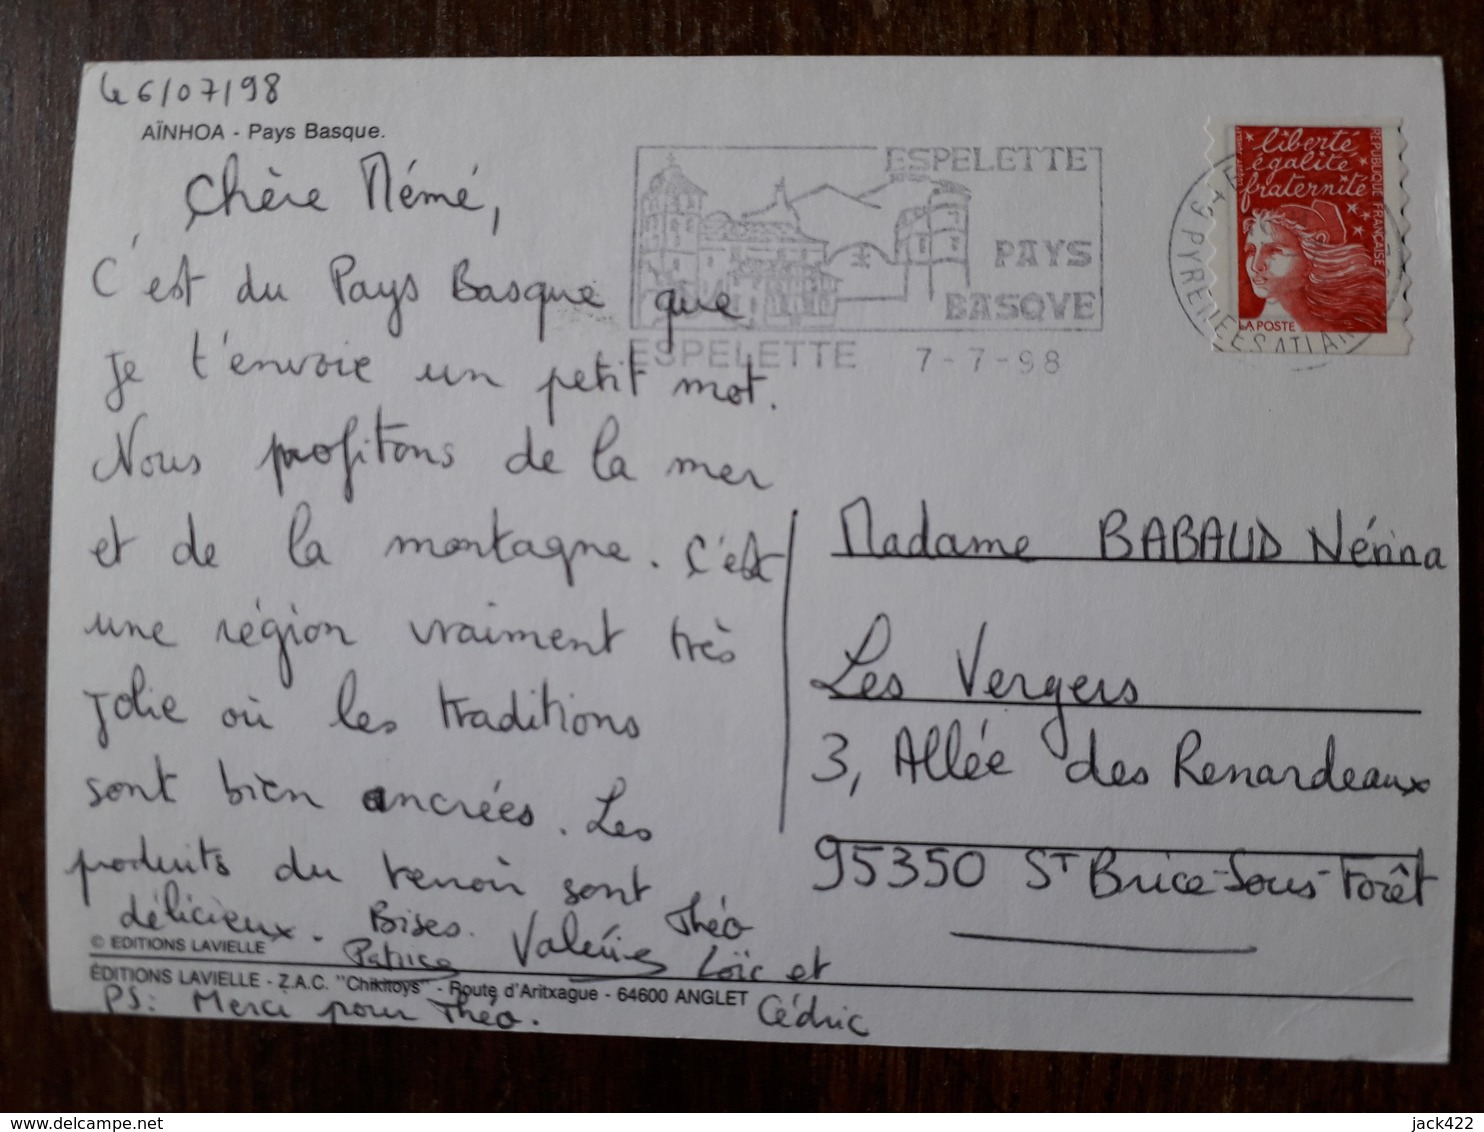 le 6/07/98
AÏNHOA - Pays Basque.
Chère Mémé,
C'est du Pays Basque que
je t'envoie un petit mot.
Nous profitons de la mer
et de la montagne. C'est
une région vraiment très
jolie où les traditions
sont bien ancrées. Les
produits du terroir sont
délicieux. Bises. Théo
Patrice Valérie Loïc et
Cédric
PS: Merci pour Théo.
© EDITIONS LAVIELLE
ÉDITIONS LAVIELLE - Z.A.C. "Chikitoys" - Route d'Aritxague - 64600 ANGLET
ESPELETTE
PAYS
BASQVE
ESPELETTE 7-7-98
liberté
égalité
fraternité
RÉPUBLIQUE FRANÇAISE
LA POSTE
PYRENEES ATLAN
Madame BABAUD Nérina
Les Vergers
3, Allée des Renardeaux
95350 ST Brice-Sous-Forêt
delcampe.net
jack422